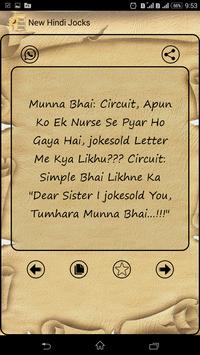 9:53
New Hindi Jocks
Munna Bhai: Circuit, Apun
Ko Ek Nurse Se Pyar Ho
Gaya Hai, jokesold Letter
Me Kya Likhu??? Circuit:
Simple Bhai Likhne Ka
"Dear Sister I jokesold You,
Tumhara Munna Bhai...!!!"